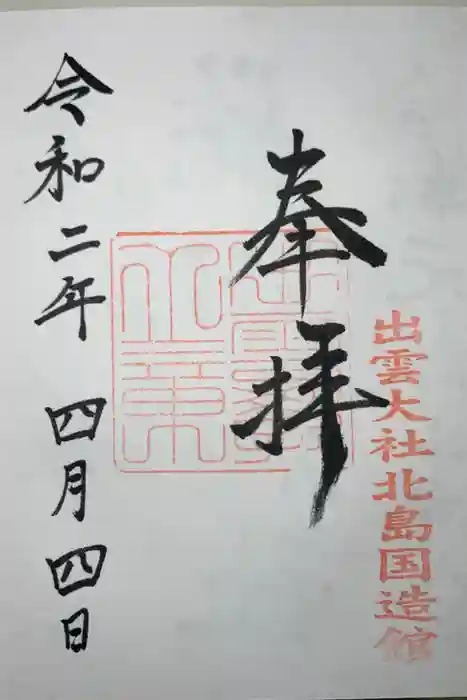 出雲大社北島国造館
奉拝
令和二年四月四日